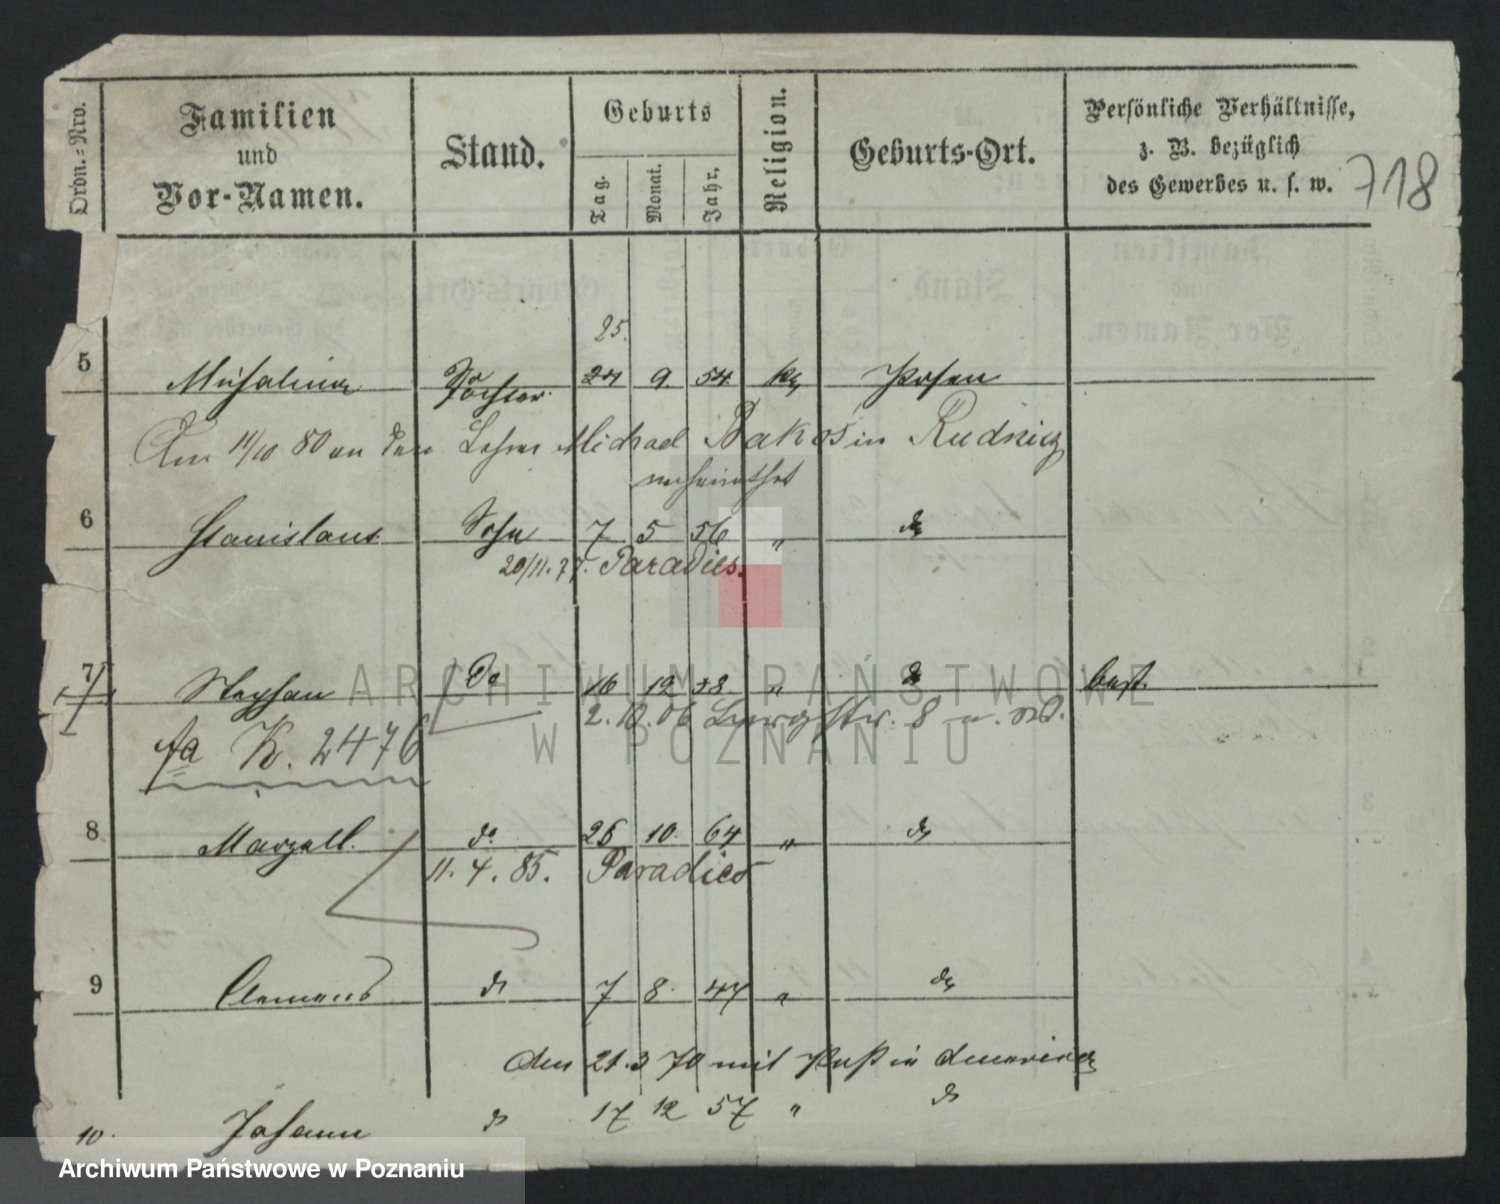 Ordn.-Nro.
Familien und Vor-Namen.
Stand.
Geburts
Tag.
Monat.
Jahr.
Religion.
Geburts-Ort.
Persönliche Verhältnisse, z. B. bezüglich des Gewerbes u. s. w.
718
25.
5 Tochter 24 9 54 kg Posen
Am 11/10 80 an den Lehrer Michael Bakos in Rudnicz
verheirathet
6 Stanislaus Sohn 7 5 56 " do
20/11.77. Paradies.
7 Stephan do 16 12 58 " do
2.10.06 Burgstr. 8
fa K. 2476
8 Marzell. do 26 10. 64 " do
11. 4. 85. Paradies
9 Clemens do 7 8. 47 " do
den 21.3 70 mit Paß in
10. Johann do 17 12 57 " do
ARCHIWUM PAŃSTWOWE
W POZNANIU
Archiwum Państwowe w Poznaniu